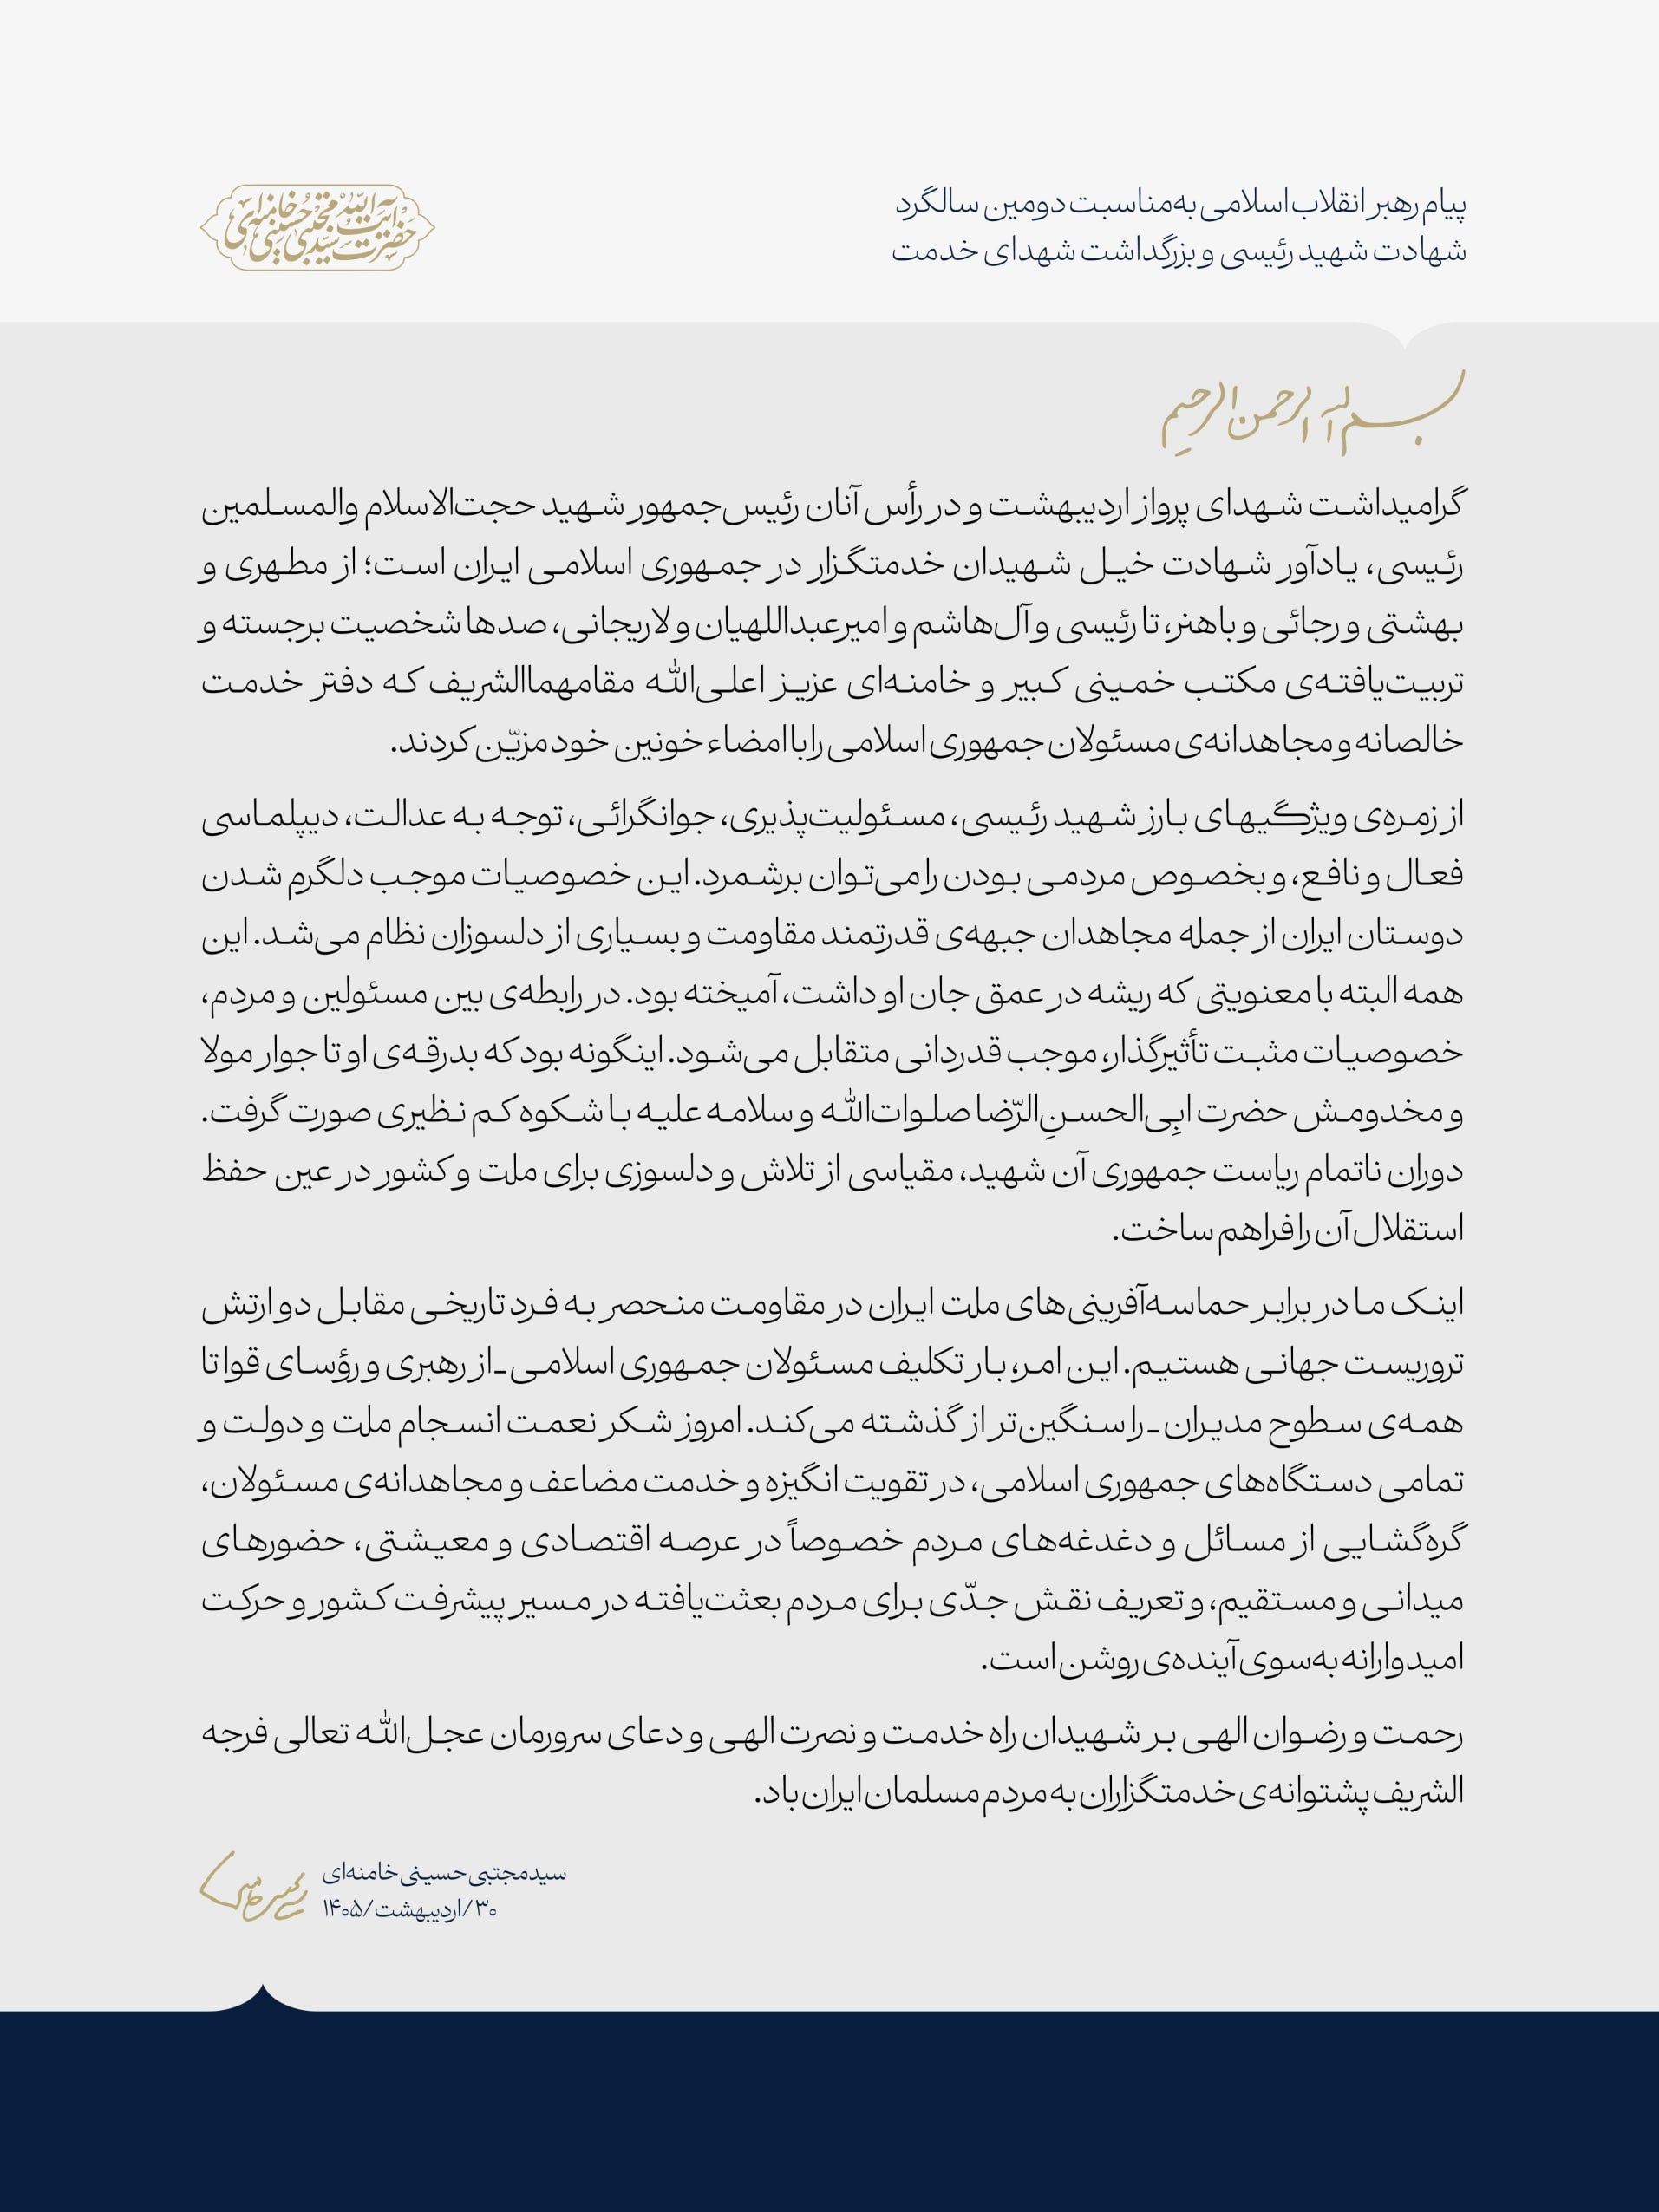 پیام رهبر انقلاب اسلامی به‌مناسبت دومین سالگرد
شهادت شهید رئیسی و بزرگداشت شهدای خدمت
حضرت آیت‌الله سید مجتبی حسینی خامنه‌ای
بسم الله الرحمن الرحیم
گرامیداشت شهدای پرواز اردیبهشت و در رأس آنان رئیس‌جمهور شهید حجت‌الاسلام والمسلمین
رئیسی، یادآور شهادت خیل شهیدان خدمتگزار در جمهوری اسلامی ایران است؛ از مطهری و
بهشتی و رجائی و باهنر، تا رئیسی و آل‌هاشم و امیرعبداللهیان و لاریجانی، صدها شخصیت برجسته و
تربیت‌یافته‌ی مکتب خمینی کبیر و خامنه‌ای عزیز اعلی‌الله مقامهماالشریف که دفتر خدمت
خالصانه و مجاهدانه‌ی مسئولان جمهوری اسلامی را با امضاء خونین خود مزیّن کردند.
از زمره‌ی ویژگیهای بارز شهید رئیسی، مسئولیت‌پذیری، جوانگرائی، توجه به عدالت، دیپلماسی
فعال و نافع، و بخصوص مردمی بودن را می‌توان برشمرد. این خصوصیات موجب دلگرم شدن
دوستان ایران از جمله مجاهدان جبهه‌ی قدرتمند مقاومت و بسیاری از دلسوزان نظام می‌شد. این
همه البته با معنویتی که ریشه در عمق جان او داشت، آمیخته بود. در رابطه‌ی بین مسئولین و مردم،
خصوصیات مثبت تأثیرگذار، موجب قدردانی متقابل می‌شود. اینگونه بود که بدرقه‌ی او تا جوار مولا
و مخدومش حضرت ابِی‌الحسنِ‌الرّضا صلوات‌الله و سلامه علیه با شکوه کم نظیری صورت گرفت.
دوران ناتمام ریاست جمهوری آن شهید، مقیاسی از تلاش و دلسوزی برای ملت و کشور در عین حفظ
استقلال آن را فراهم ساخت.
اینک ما در برابر حماسه‌آفرینی‌های ملت ایران در مقاومت منحصر به فرد تاریخی مقابل دو ارتش
تروریست جهانی هستیم. این امر، بار تکلیف مسئولان جمهوری اسلامی ـ از رهبری و رؤسای قوا تا
همه‌ی سطوح مدیران ـ را سنگین‌تر از گذشته می‌کند. امروز شکر نعمت انسجام ملت و دولت و
تمامی دستگاه‌های جمهوری اسلامی، در تقویت انگیزه و خدمت مضاعف و مجاهدانه‌ی مسئولان،
گره‌گشایی از مسائل و دغدغه‌های مردم خصوصاً در عرصه اقتصادی و معیشتی، حضورهای
میدانی و مستقیم، و تعریف نقش جدّی برای مردم بعثت‌یافته در مسیر پیشرفت کشور و حرکت
امیدوارانه به‌سوی آینده‌ی روشن است.
رحمت و رضوان الهی بر شهیدان راه خدمت و نصرت الهی و دعای سرورمان عجل‌الله تعالی فرجه
الشریف پشتوانه‌ی خدمتگزاران به مردم مسلمان ایران باد.
سید مجتبی حسینی خامنه‌ای
۳۰/اردیبهشت/۱۴۰۵